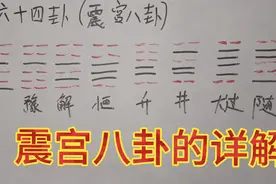 六十四卦(震宫八卦)
豫 解 恒 升 井 大过 随
震宫八卦的详解